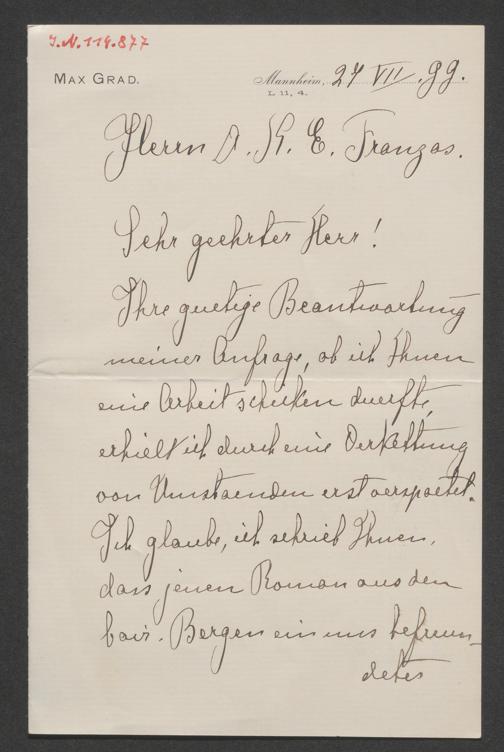 J.N. 119.877
MAX GRAD.
Mannheim, 27 VII. 99.
L 11, 4.
Herrn D. K. E. Franzos.
Sehr geehrter Herr!
Ihre guetige Beantwortung
meiner Anfrage, ob ich Ihnen
eine Arbeit schicken duerfte,
erhielt ich durch eine Verkettung
von Umstaenden erst verspaetet.
Ich glaube, ich schrieb Ihnen,
dass jenen Roman aus den
bair. Bergen ein uns befreun-
detes